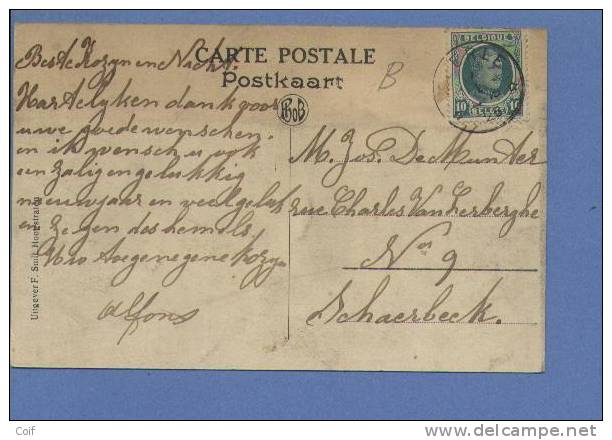 CARTE POSTALE
Postkaart
Beste Kozyn en Nicht.
Hartelyken dank voor
uwe goede wenschen.
en ik wensch u ook
een zalig en gelukkig
nieuwjaar en veel geluk
en zegen des hemels.
Uw toegenegene Kozyn
Alfons
B
BELGIQUE
10
10
BELGIË
M. Jos. De Munter
rue Charles Vanderberghe
No 9
Schaerbeek.
Uitgever F. Smit Hoogstraten
Coif
delcampe.net